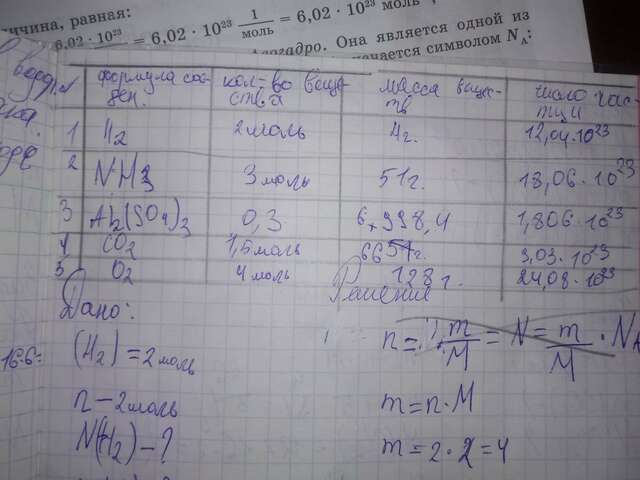 ичина, равная:
6,02 · 10²³ = 6,02 · 10²³ 1/моль = 6,02 · 10²³ моль
Авогадро. Она является одной из
начается символом N_A:
формула сое- кол-во веще- масса вещес- число час-
ден. ства тв тиц
1 H₂ 2 моль 4г. 12,04·10²³
2 NH3 3 моль 51г. 18,06·10²³
3 Al₂(SO₄)₃ 0,3 998,4 1,806·10²³
4 CO₂ 1,5 моль 66 г. 3,03·10²³
5 O₂ 4 моль 128 г. 24,08·10²³
Дано: Решение
(H₂) = 2 моль n = m/M = N = m/M · N_A
n – 2 моль m = n · M
N(H₂) – ? m = 2 · 2 = 4